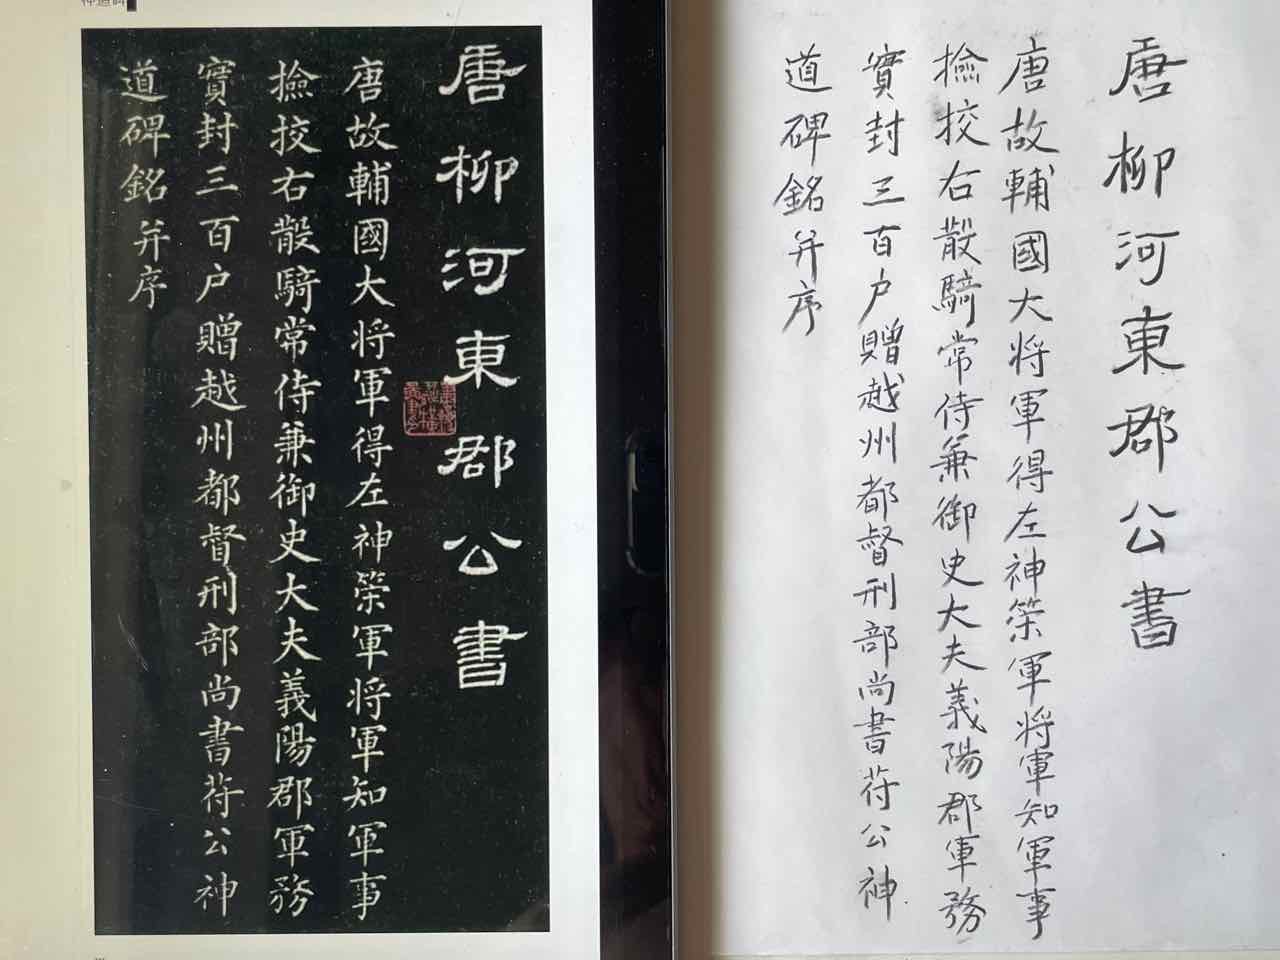 唐柳河東郡公書
唐故輔國大将軍得左神䇿軍将軍知軍事
撿挍右散騎常侍兼御史大夫義陽郡軍務
實封三百户贈越州都督刑部尚書苻公神
道碑銘并序
唐柳河東郡公書
唐故輔國大将軍得左神䇿軍将軍知軍事
撿挍右散騎常侍兼御史大夫義陽郡軍務
實封三百户贈越州都督刑部尚書苻公神
道碑銘并序